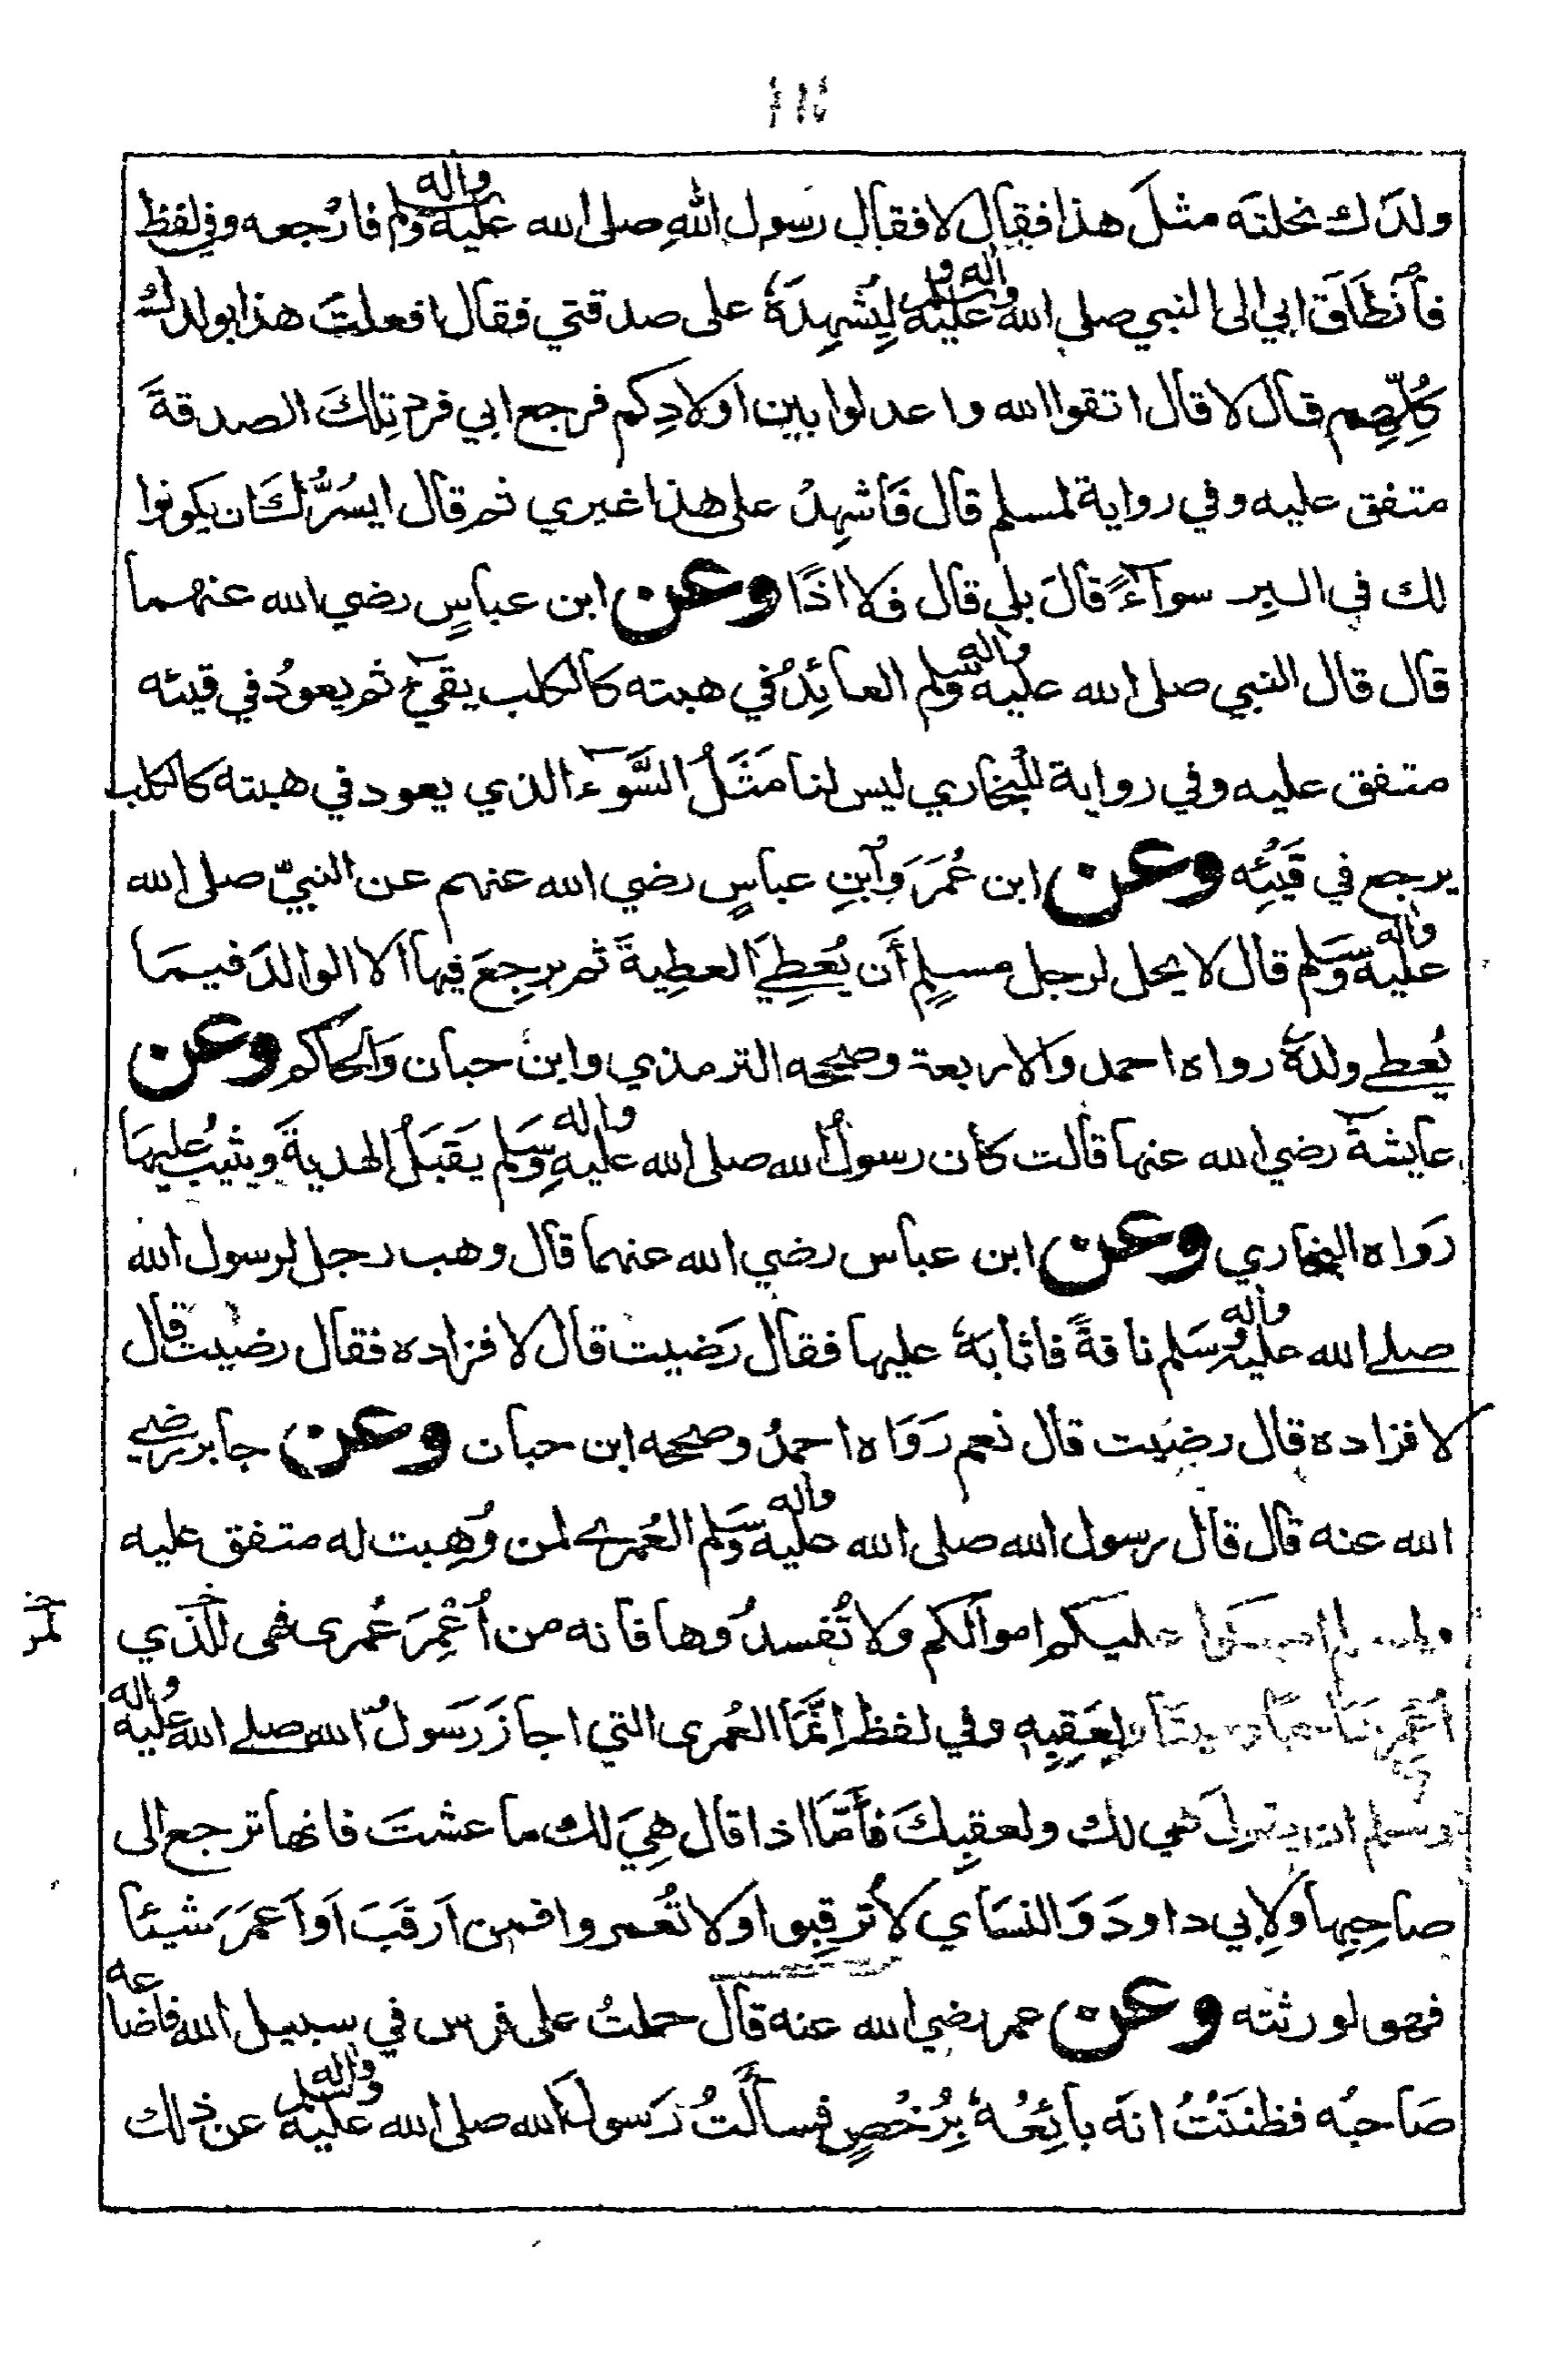 ولدك نحلته مثلَ هذا فقال لا فقال رسول اللهِ صلى الله عليه واله وسلم فارْجعه وفي لفظ
فاَنْطَلَقَ ابي الى النبي صلى الله عليه واله وسلم لِيُشْهِدَهُ على صدقتي فقال افعلتَ هذا بولدك
كُلِّهِم قال لا قال اتقوا الله واعدلوا بين اولادِكم فرجع ابي فرد تِلكَ الصدقةَ
متفق عليه وفي رواية لمسلم قال فَاَشهِدْ على هذا غيري ثم قال ايسُرُّكَ ان يكونوا
لك في البِر سوآءً قالَ بلى قال فلا اذًا وعن ابن عباسٍ رضي الله عنهما
قال قال النبي صلى الله عليه واله وسلم العائِدُ في هبته كالكلب يقيءُ ثم يعودُ في قيئه
متفق عليه وفي رواية للبخاري ليس لنا مَثَلُ السَّوءِ الذي يعود في هبته كالكلب
يرجع في قَيْئِه وعن ابن عُمَرَ وَابنِ عباسٍ رضي الله عنهم عن النبيّ صلى الله
عليه واله وَسَلم قال لا يحل لرجل مسلِمٍ أَن يُعْطِيَ العطِيةَ ثم يرجِعَ فيها الا الوالدَ فيمَا
يُعطي ولدَهُ رواه احمد والاربعة وصححه الترمذي وابن حبان وَالحاكم وعن
عايشةَ رضي الله عنها قالت كان رسولُ الله صلى الله عليهِ واله وَسَلم يَقبَلُ الهديةَ ويثيبُ عليهَا
رَواه البخاري وعن ابن عباس رضي الله عنهما قال وهب رجل لرسول الله
صلى الله عليه واله وسَلم ناقةً فاثابَهُ عليها فقال رَضيت قال لا فزاده فقال رضيت قال
لا فزاده قال رضيت قال نعم رَوَاه احمدُ وصححه ابن حبان وعن جابر رضي
الله عنه قال قال رسول الله صلى الله عليه واله وَسَلم العُمرى لمن وُهِبت له متفق عليه
ولمسلم امسكوا عليكم اموالكم ولا تُفسدُوها فانه من اُعْمِرَ عُمرى فهى للّذي
اُعْمِرَهَا حيًّا وميتًا ولِعَقِبِهِ وفي لفظ اِنَّمَا العُمرى التي اجازَ رَسَولُ الله صلى الله عليه واله
وسلم ان يقولَ هي لك ولعقِبِكَ فأمَّا اذا قال هِيَ لك ما عشتَ فانها ترجع الى
صاحِبِها ولِابي داودَ وَالنسَاي لا تُرقِبوا ولا تُعمروا فمن اَرقَبَ اَو اَعمَرَ شيئا
فهو لورثته وعن عمر رضي الله عنه قال حملتُ على فرس في سبيل الله فاضاعه
صَاحبُه فظننتُ انه بائِعُهُ بِرُخصٍ فسألتُ رَسولَ الله صلى الله عليه واله وسلم عن ذلك